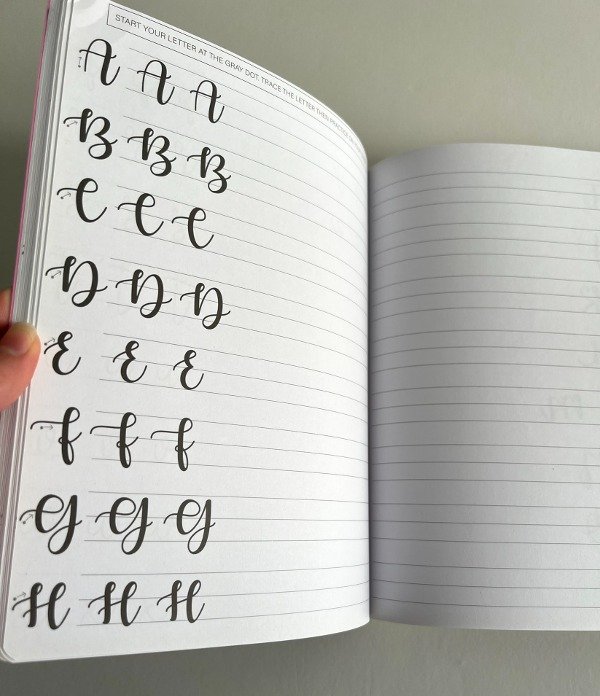 START YOUR LETTER AT THE GRAY DOT. TRACE THE LETTER THEN PRACTICE
A A A
B B B
C C C
D D D
E E E
F F F
G G G
H H H